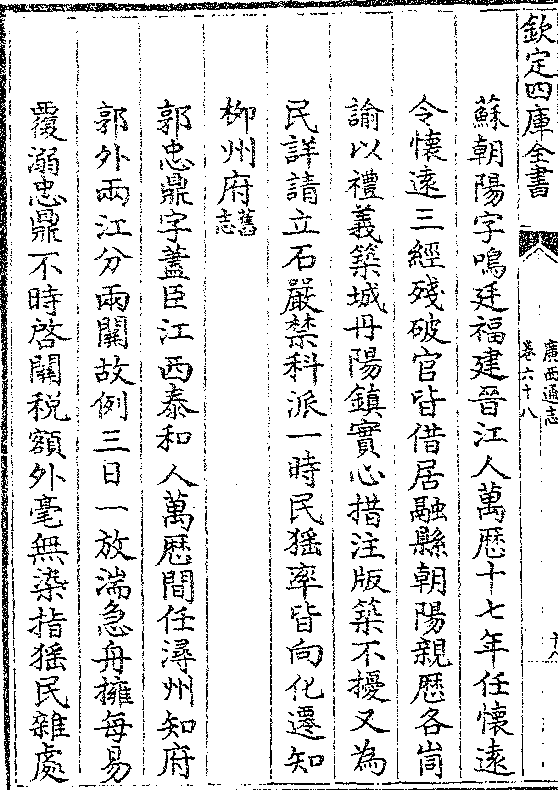 欽定四庫全書
廣西通志
卷六十八
蘇朝陽字鳴廷福建晉江人萬歷十七年任懷遠
令懷遠三經殘破官皆借居融縣朝陽親歷各峝
諭以禮義築城丹陽鎮實心措注版築不擾又為
民詳請立石嚴禁科派一時民猺率皆向化遷知
柳州府舊志
郭忠鼎字蓋臣江西泰和人萬歷間任潯州知府
郭外兩江分兩關故例三日一放湍急舟擁每易
覆溺忠鼎不時啓關税額外毫無染指猺民雜處